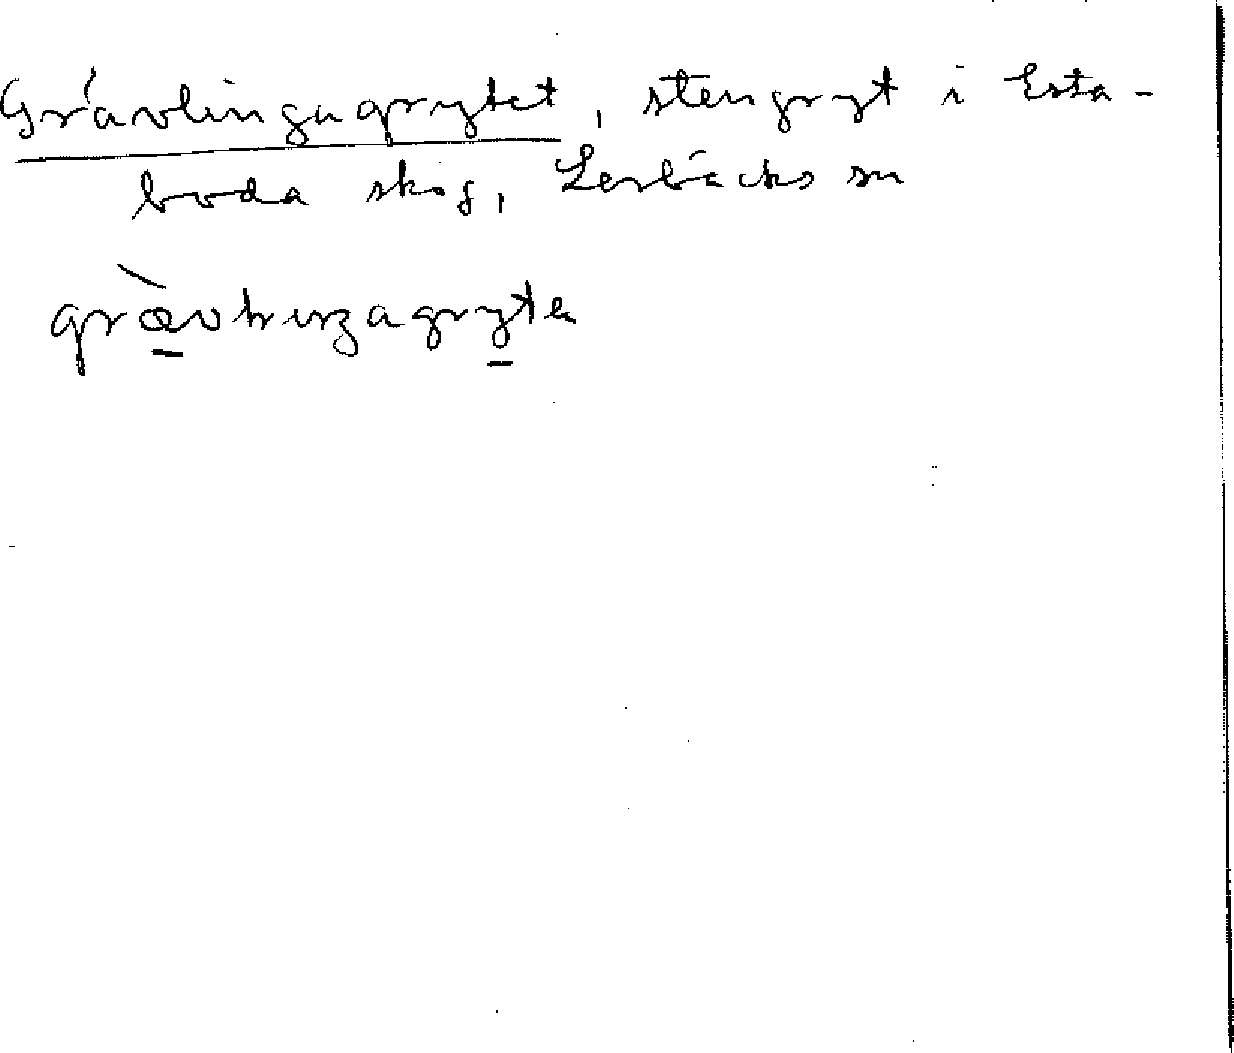 Grävlingagrytet, stengryt i Esta-
boda skog, Lerbäcks sn
græ̀vliŋagryte